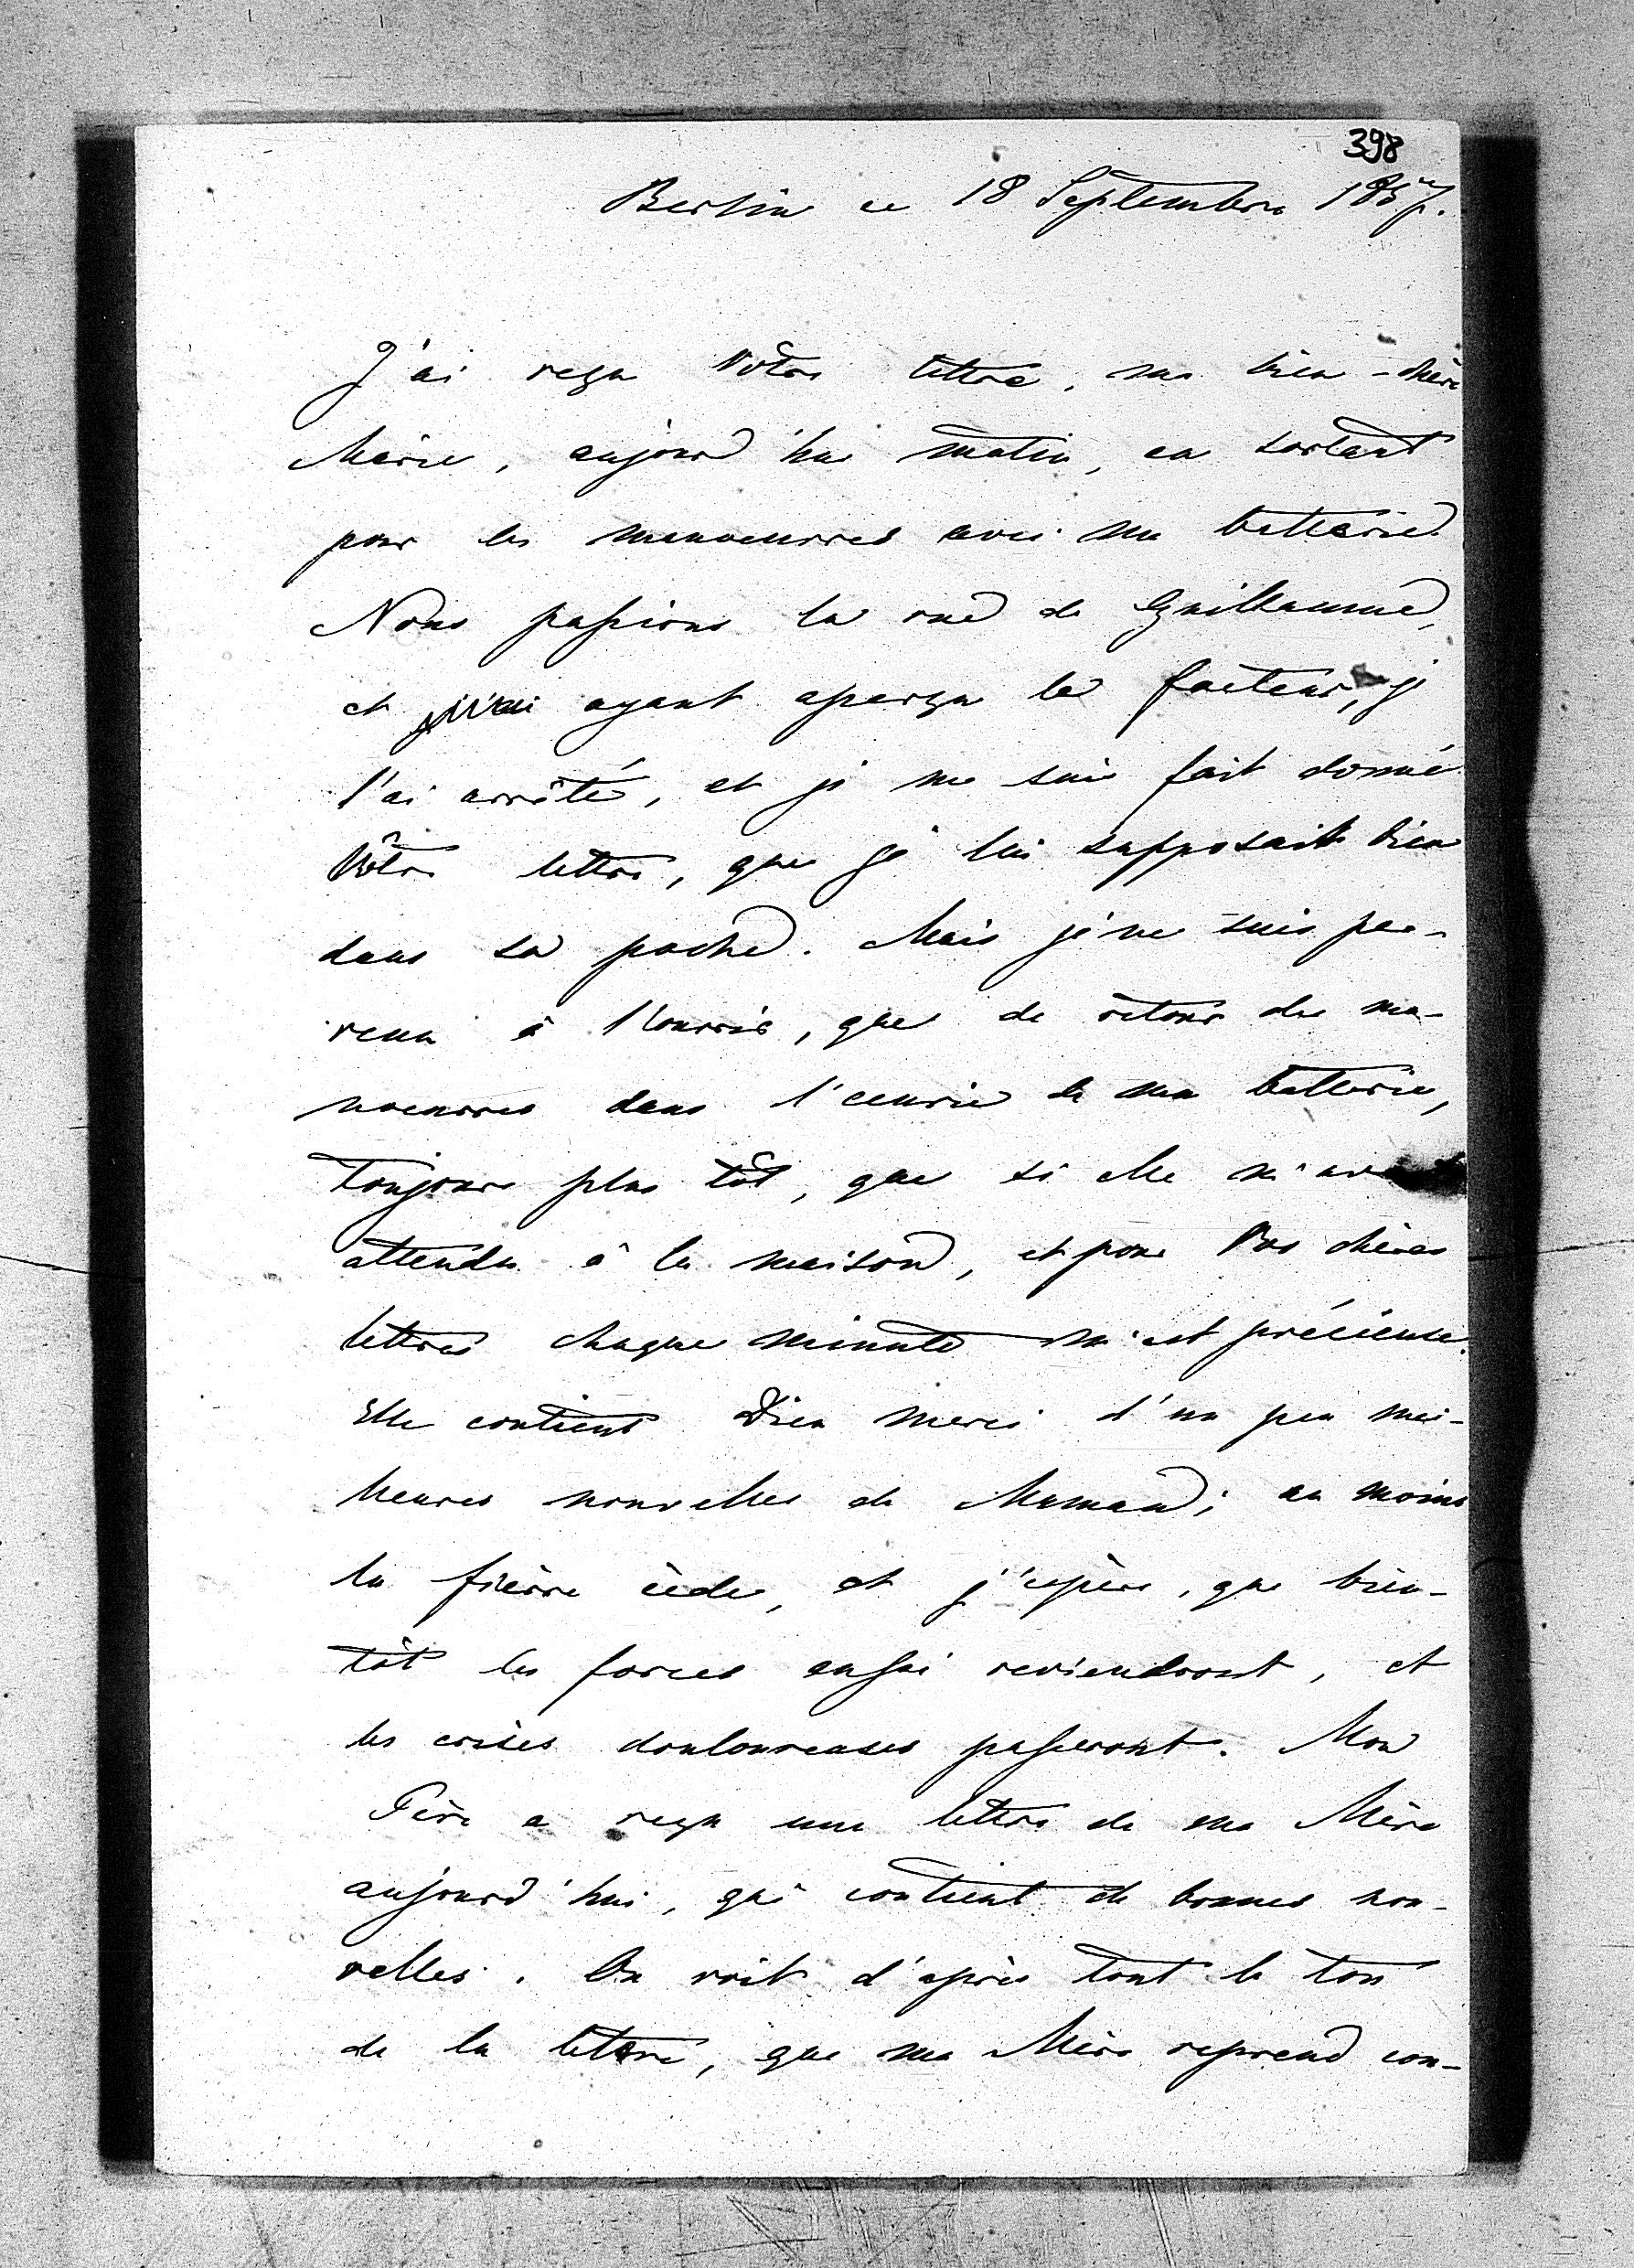 398
Berlin ce 18 Septembre 1857.
J'ai reçu Vôtre lettre, ma bien-chère
Marie, aujourd'hui matin, en sortant
pour les manoeuvres avec ma batterie.
Nous passions la rue de Guillaume,
et ayant aperçu le facteur, je
l'ai arrêté, et je me suis fait donné
Vôtre lettre, que je lui supposait bien
dans sa poche. Mais je ne suis par-
venu à l'ouvrir, que de retour des ma-
noeuvres dans l'ecurie de ma batterie,
toujours plus tôt, que si elle m'avait
attendu à la maison, et pour Vos chères
lettres chaque minute m'est précieuse.
Elle contient Dieu merci d'un peu mei-
lleures nouvelles de Maman; au moins
la fièvre cède, et j'espère, que bien-
tôt les forces aussi reviendront, et
les crises douloureuses passeront. Mon
Père a reçu une lettre de ma Mère
aujourd'hui, qui contient de bonnes nou-
velles. On voit d'après tout le ton
de la lettre, que ma Mère reprend con-